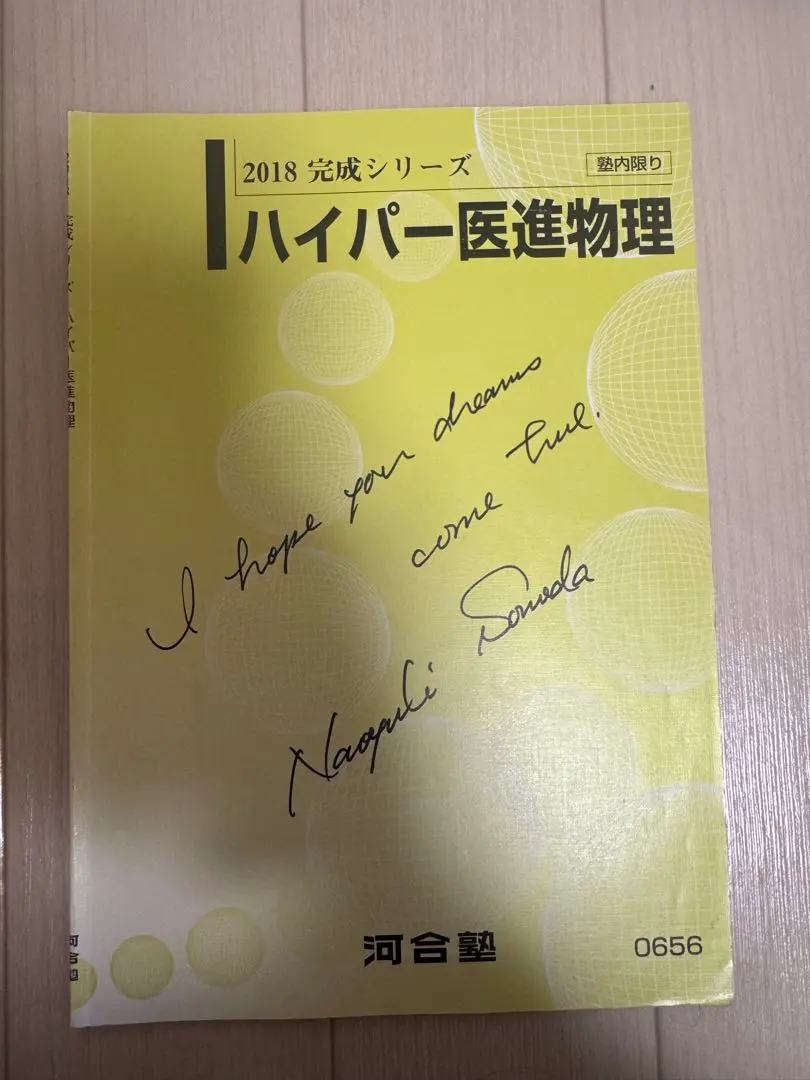 2018 完成シリーズ
塾内限り
ハイパー医進物理
I hope your dreams
come true.
Naoyuki Soneda
河合塾
0656
完成シリーズ ハイパー医進物理
河合塾